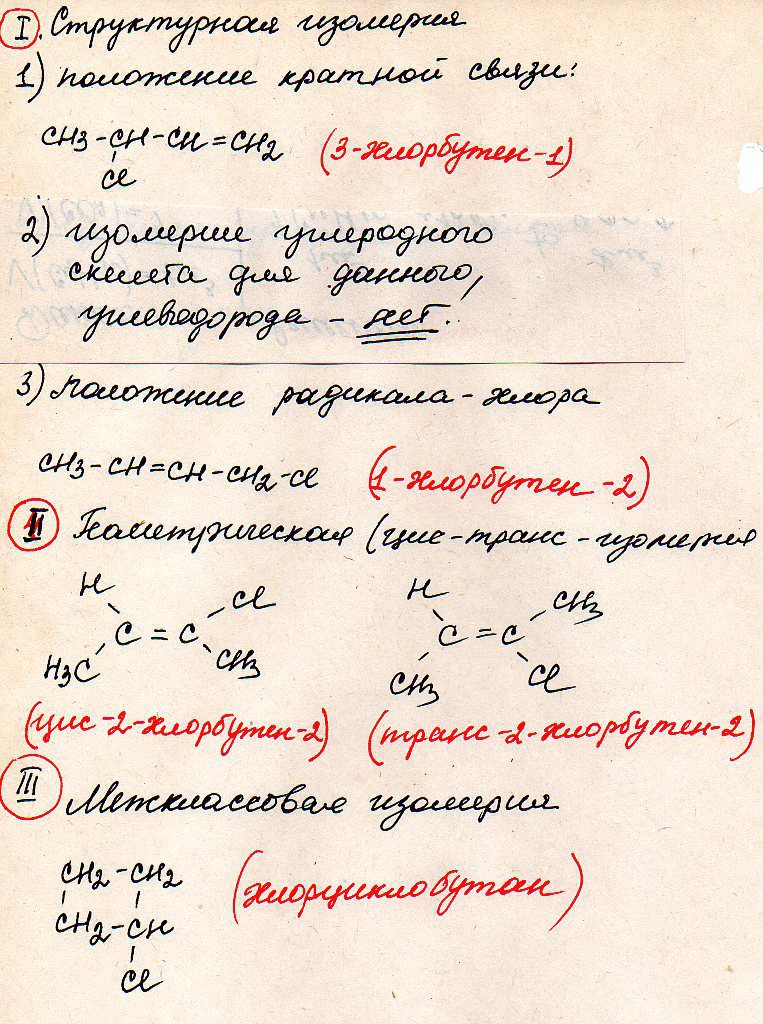 I. Структурная изомерия
1) положение кратной связи:
CH3-CH-CH=CH2 (3-хлорбутен-1)
Cl
2) изомерие углеродного
скелета для данного
углеводорода - нет!
3) положение радикала-хлора
CH3-CH=CH-CH2-Cl (1-хлорбутен-2)
II Геометрическая (цис-транс-изомерия
H Cl H CH3
C=C C=C
H3C CH3 CH3 Cl
(цис-2-хлорбутен-2) (транс-2-хлорбутен-2)
III Межклассовая изомерия
CH2-CH2 (хлорциклобутан)
CH2-CH
Cl